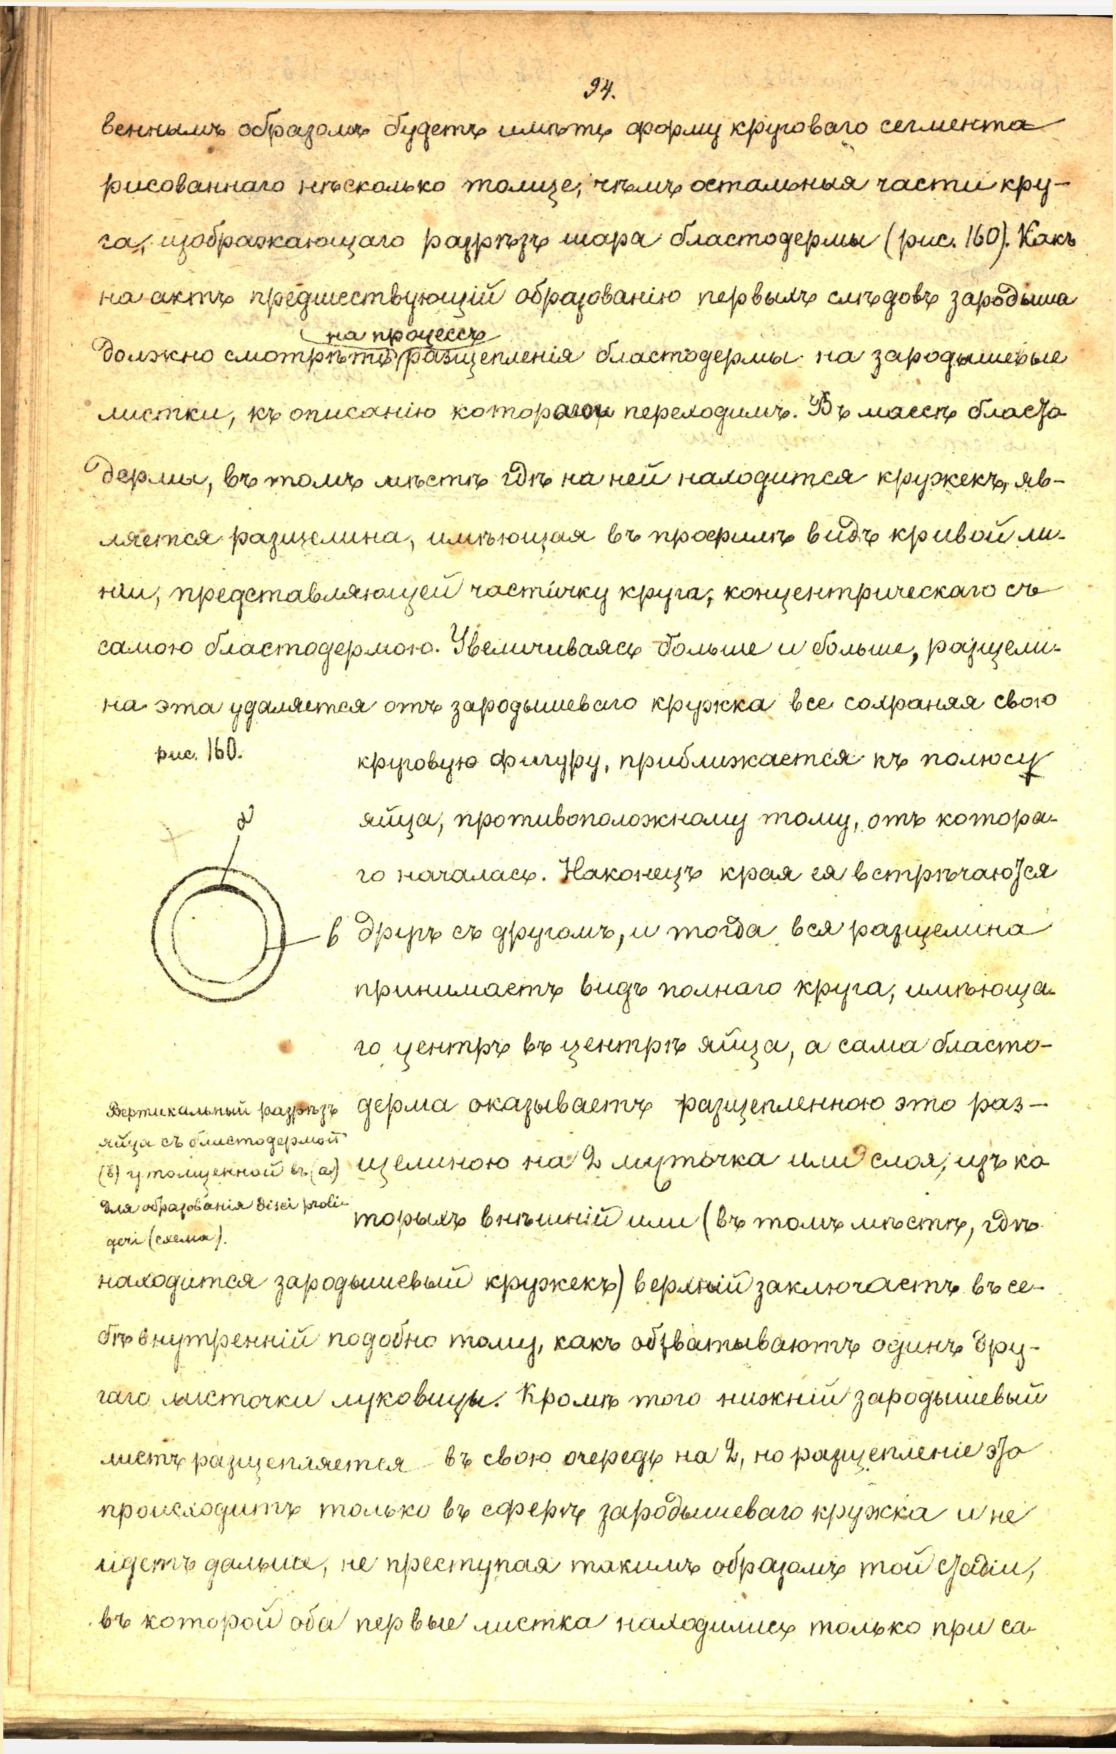 94.
веннымъ образомъ будетъ имѣть форму круговаго сегмента
рисованнаго нѣсколько толще, чѣмъ остальныя части кру-
га, изображающаго разрѣзъ шара бластодермы (рис. 160). Какъ
на актъ предшествующій образованію первыхъ слѣдовъ зародыша
на процессъ
должно смотрѣть разщепленія бластодермы на зародышевые
листки, къ описанію котораго переходимъ. Въ массѣ бласто
дермы, въ томъ мѣстѣ гдѣ на ней находится кружекъ, яв-
ляется разщелина, имѣющая въ профилѣ видъ кривой ли-
ніи, представляющей частичку круга, концентрическаго съ
самою бластодермою. Увеличиваясь больше и больше, разщели-
на эта удаляется отъ зародышеваго кружка все сохраняя свою
рис. 160.
круговую фигуру, приближается къ полюсу
яйца, противоположному тому, отъ котора-
го началась. Наконецъ края ея встрѣчаются
другъ съ другомъ, и тогда вся разщелина
принимаетъ видъ полнаго круга, имѣюща-
го центръ въ центрѣ яйца, а сама бласто-
дерма оказываетъ разщепленною это раз-
щелиною на 2 мѣшочка или слоя, изъ ко
торыхъ внѣшній или (въ томъ мѣстѣ, гдѣ
а
в
Вертикальный разрѣзъ
яйца съ бластодермой
(в) утолщенной въ (а)
для образованія disci proli-
geri (схема).
находится зародышевый кружекъ) верхній заключаетъ въ се-
бѣ внутренній подобно тому, какъ обхватываютъ одинъ дру-
гаго листочки луковицы. Кромѣ того нижній зародышевый
листъ разщепляется въ свою очередь на 2, но разщепленіе это
происходитъ только въ сферѣ зародышеваго кружка и не
идетъ дальше, не преступая такимъ образомъ той стадіи,
въ которой оба первые листка находились только при са-